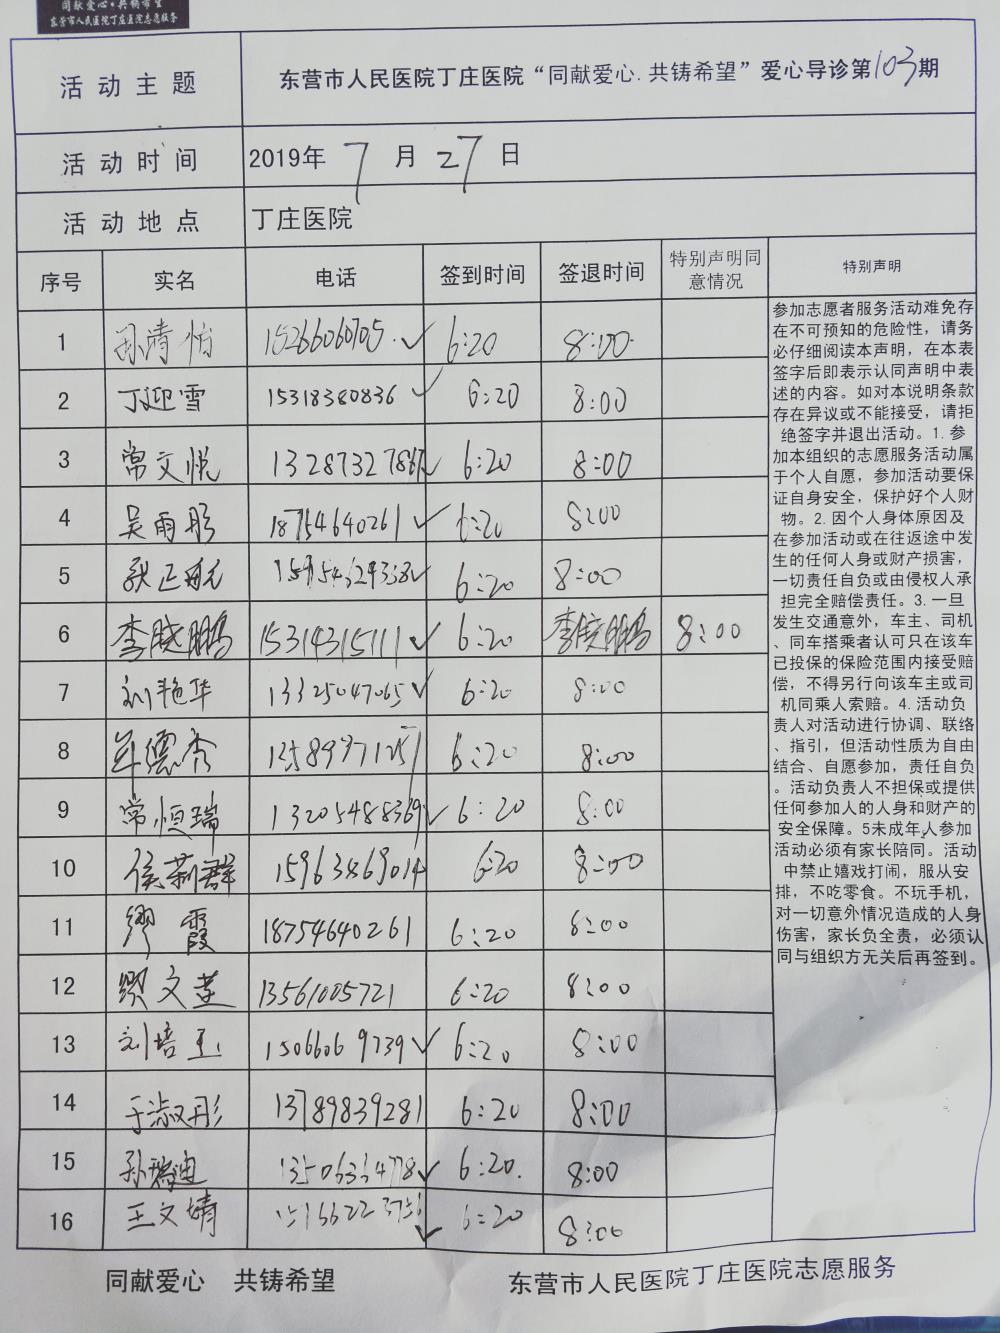 同献爱心·共铸希望
东营市人民医院丁庄医院志愿服务
活动主题 东营市人民医院丁庄医院“同献爱心.共铸希望”爱心导诊第103期
活动时间 2019年7月27日
活动地点 丁庄医院
序号 实名 电话 签到时间 签退时间 特别声明同意情况 特别声明
1 孙清怡 15266060705 ✓ 6:20 8:00
2 丁迎雪 15318380836 ✓ 6:20 8:00
3 常文悦 13287327867 ✓ 6:20 8:00
4 吴雨彤 18754640261 ✓ 6:20 8:00
5 张正航 ✓ 6:20 8:00
6 李晓鹏 15314315111 ✓ 6:20 李晓鹏 8:00
7 刘艳华 13325047065 ✓ 6:20 8:00
8 牟德秀 6:20 8:00
9 常恒瑞 13205488369 ✓ 6:20 8:00
10 侯莉群 15963469014 6:20 8:00
11 缪霞 18754640261 6:20 8:00
12 缪文莲 13561005721 6:20 8:00
13 刘培玉 15066069739 ✓ 6:20 8:00
14 于淑彤 13789839281 6:20 8:00
15 孙瑞迪 13506364778 ✓ 6:20. 8:00
16 王文婧 ✓ 6:20 8:00
参加志愿者服务活动难免存
在不可预知的危险性，请务
必仔细阅读本声明，在本表
签字后即表示认同声明中表
述的内容。如对本说明条款
存在异议或不能接受，请拒
绝签字并退出活动。1.参
加本组织的志愿服务活动属
于个人自愿，参加活动要保
证自身安全，保护好个人财
物。2.因个人身体原因及
在参加活动或在往返途中发
生的任何人身或财产损害，
一切责任自负或由侵权人承
担完全赔偿责任。3.一旦
发生交通意外，车主、司机
、同车搭乘者认可只在该车
已投保的保险范围内接受赔
偿，不得另行向该车主或司
机同乘人索赔。4.活动负
责人对活动进行协调、联络
、指引，但活动性质为自由
结合、自愿参加，责任自负
。活动负责人不担保或提供
任何参加人的人身和财产的
安全保障。5未成年人参加
活动必须有家长陪同。活动
中禁止嬉戏打闹，服从安
排，不吃零食。不玩手机，
对一切意外情况造成的人身
伤害，家长负全责，必须认
同与组织方无关后再签到。
同献爱心 共铸希望 东营市人民医院丁庄医院志愿服务